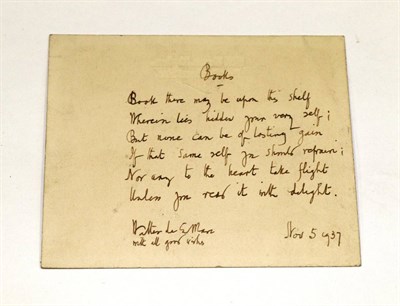 Books
Book there may be upon this shelf
Wherein lies hidden your very self;
But none can be of lasting gain
If that same self you should refrain;
Nor any to the heart take flight
Unless you read it with delight.
Walter de la Mare
with all good wishes
Nov 5 1937